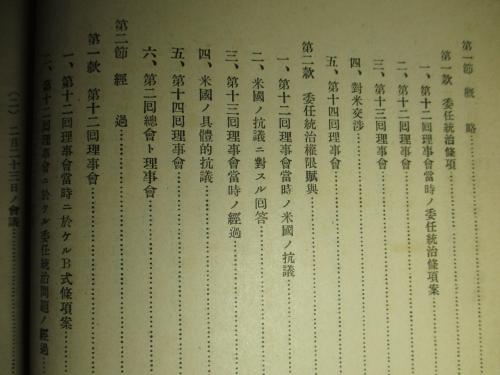 第一節 概略
第一款 委任統治條項
一、第十二回理事會當時ノ委任統治條項案
二、第十二回理事會
三、第十三回理事會
四、對米交涉
五、第十四回理事會
第二款 委任統治權限賦與
一、第十二回理事會當時ノ米國ノ抗議
二、米國ノ抗議ニ對スル回答
三、第十三回理事會當時ノ經過
四、米國ノ具體的抗議
五、第十四回理事會
六、第二回總會ト理事會
第二節 經過
第一款 第十二回理事會
一、第十二回理事會當時ニ於ケルB式條項案
二、第十二回理事會ニ於ケル委任統治問題ノ經過
(一) 二月二十三日ノ會議